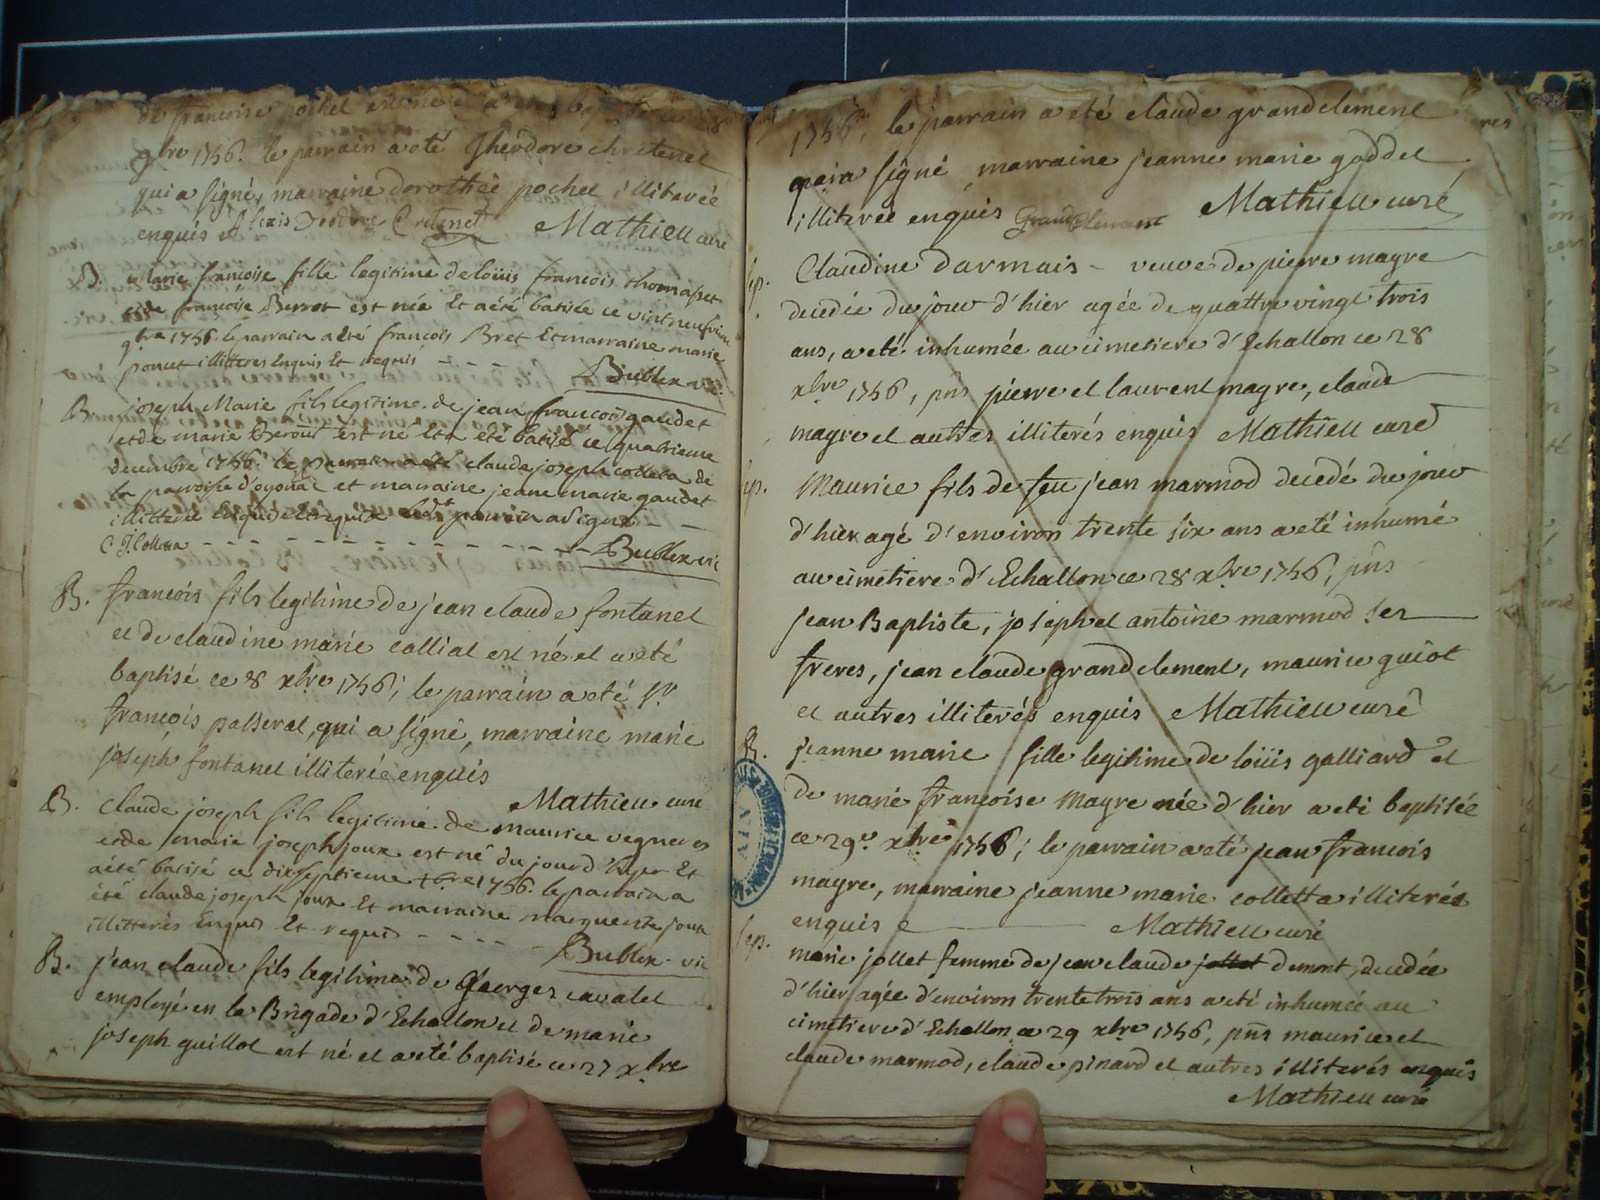 de francoise pochet est né et a été bap
9bre 1756. le parrain a eté Theodore chretenet
qui a signé, marraine dorothée pochet illiterée
enquis Alexis Teodore Cretenet Mathieu curé
B. Marie francoise fille legitime de loüis francois thomasset
et de francoise Berrot est née Et a été batisée ce vint neuf
9bre 1756. le parrain a été francois Bret Et marraine marie
poncet illitteres Enquis Et requis - - - Bublex vic.
B. joseph Marie fils legitime de jean francois gaudet
et de marie est né Et a été batisé ce quatrieme
decembre 1756. le parrain a été claude joseph colleta de
la parroisse d'oyonat et marraine jeane marie gaudet
illitterée Enquise Et requise ledt parrain a Signé - -
C J. Colleta - - - - - - - - - Bublex vic
B. francois fils legitime de jean claude fontanel
et de claudine marie calliat est né et a eté
baptisé ce 8 xbre 1756; le parrain a eté Sr
francois passerat, qui a signé, marraine marie
joseph fontanel illiterée enquis
Mathieu curé
B. Claude joseph fils legitime de maurice
et de marie joseph joux est né du jour d'hyer Et
a été batisé ce dixseptieme xbre 1756. le parrain a
été claude joseph joux Et marraine marguerite joux
illitterés Enquis Et requis - - - - Bublex vic
B. jean claude fils legitime de Georges cavalet
employé en la Brigade d'Echallon et de marie
joseph guillot est né et a eté baptisé ce 27 xbre
1756, le parrain a eté claude grandclement
qui a signé, marraine jeanne marie goddet
illiterée enquis Grandclement Mathieu curé
Sep. Claudine darmais - veuve de pierre magre
decedée du jour d'hier agée de quattre vingt trois
ans, a eté inhumée au cimetiere d'Echallon ce 28
xbre 1756, pns pierre et laurent magre, claude
magre et autres illiterés enquis Mathieu curé
Sep. Maurice fils de feu jean marmod decedé du jour
d'hier agé d'environ trente six ans a eté inhumé
au cimetiere d'Echallon ce 28 xbre 1756, pns
jean Baptiste, joseph et antoine marmod ses
freres, jean claude grandclement, maurice guiot
et autres illiterés enquis Mathieu curé
B. jeanne marie fille legitime de loüis galliard et
de marie francoise Magre née d'hier a eté baptisée
ce 29e xbre 1756; le parrain a eté jean francois
magre, marraine jeanne marie colletta illiterés
enquis Mathieu curé
Sep. marie jollet femme de jean claude jollet demont, decedée
d'hier, agée d'environ trente trois ans a eté inhumée au
cimetiere d'Echallon ce 29 xbre 1756, pns maurice et
claude marmod, claude pinard et autres illiterés enquis
Mathieu curé